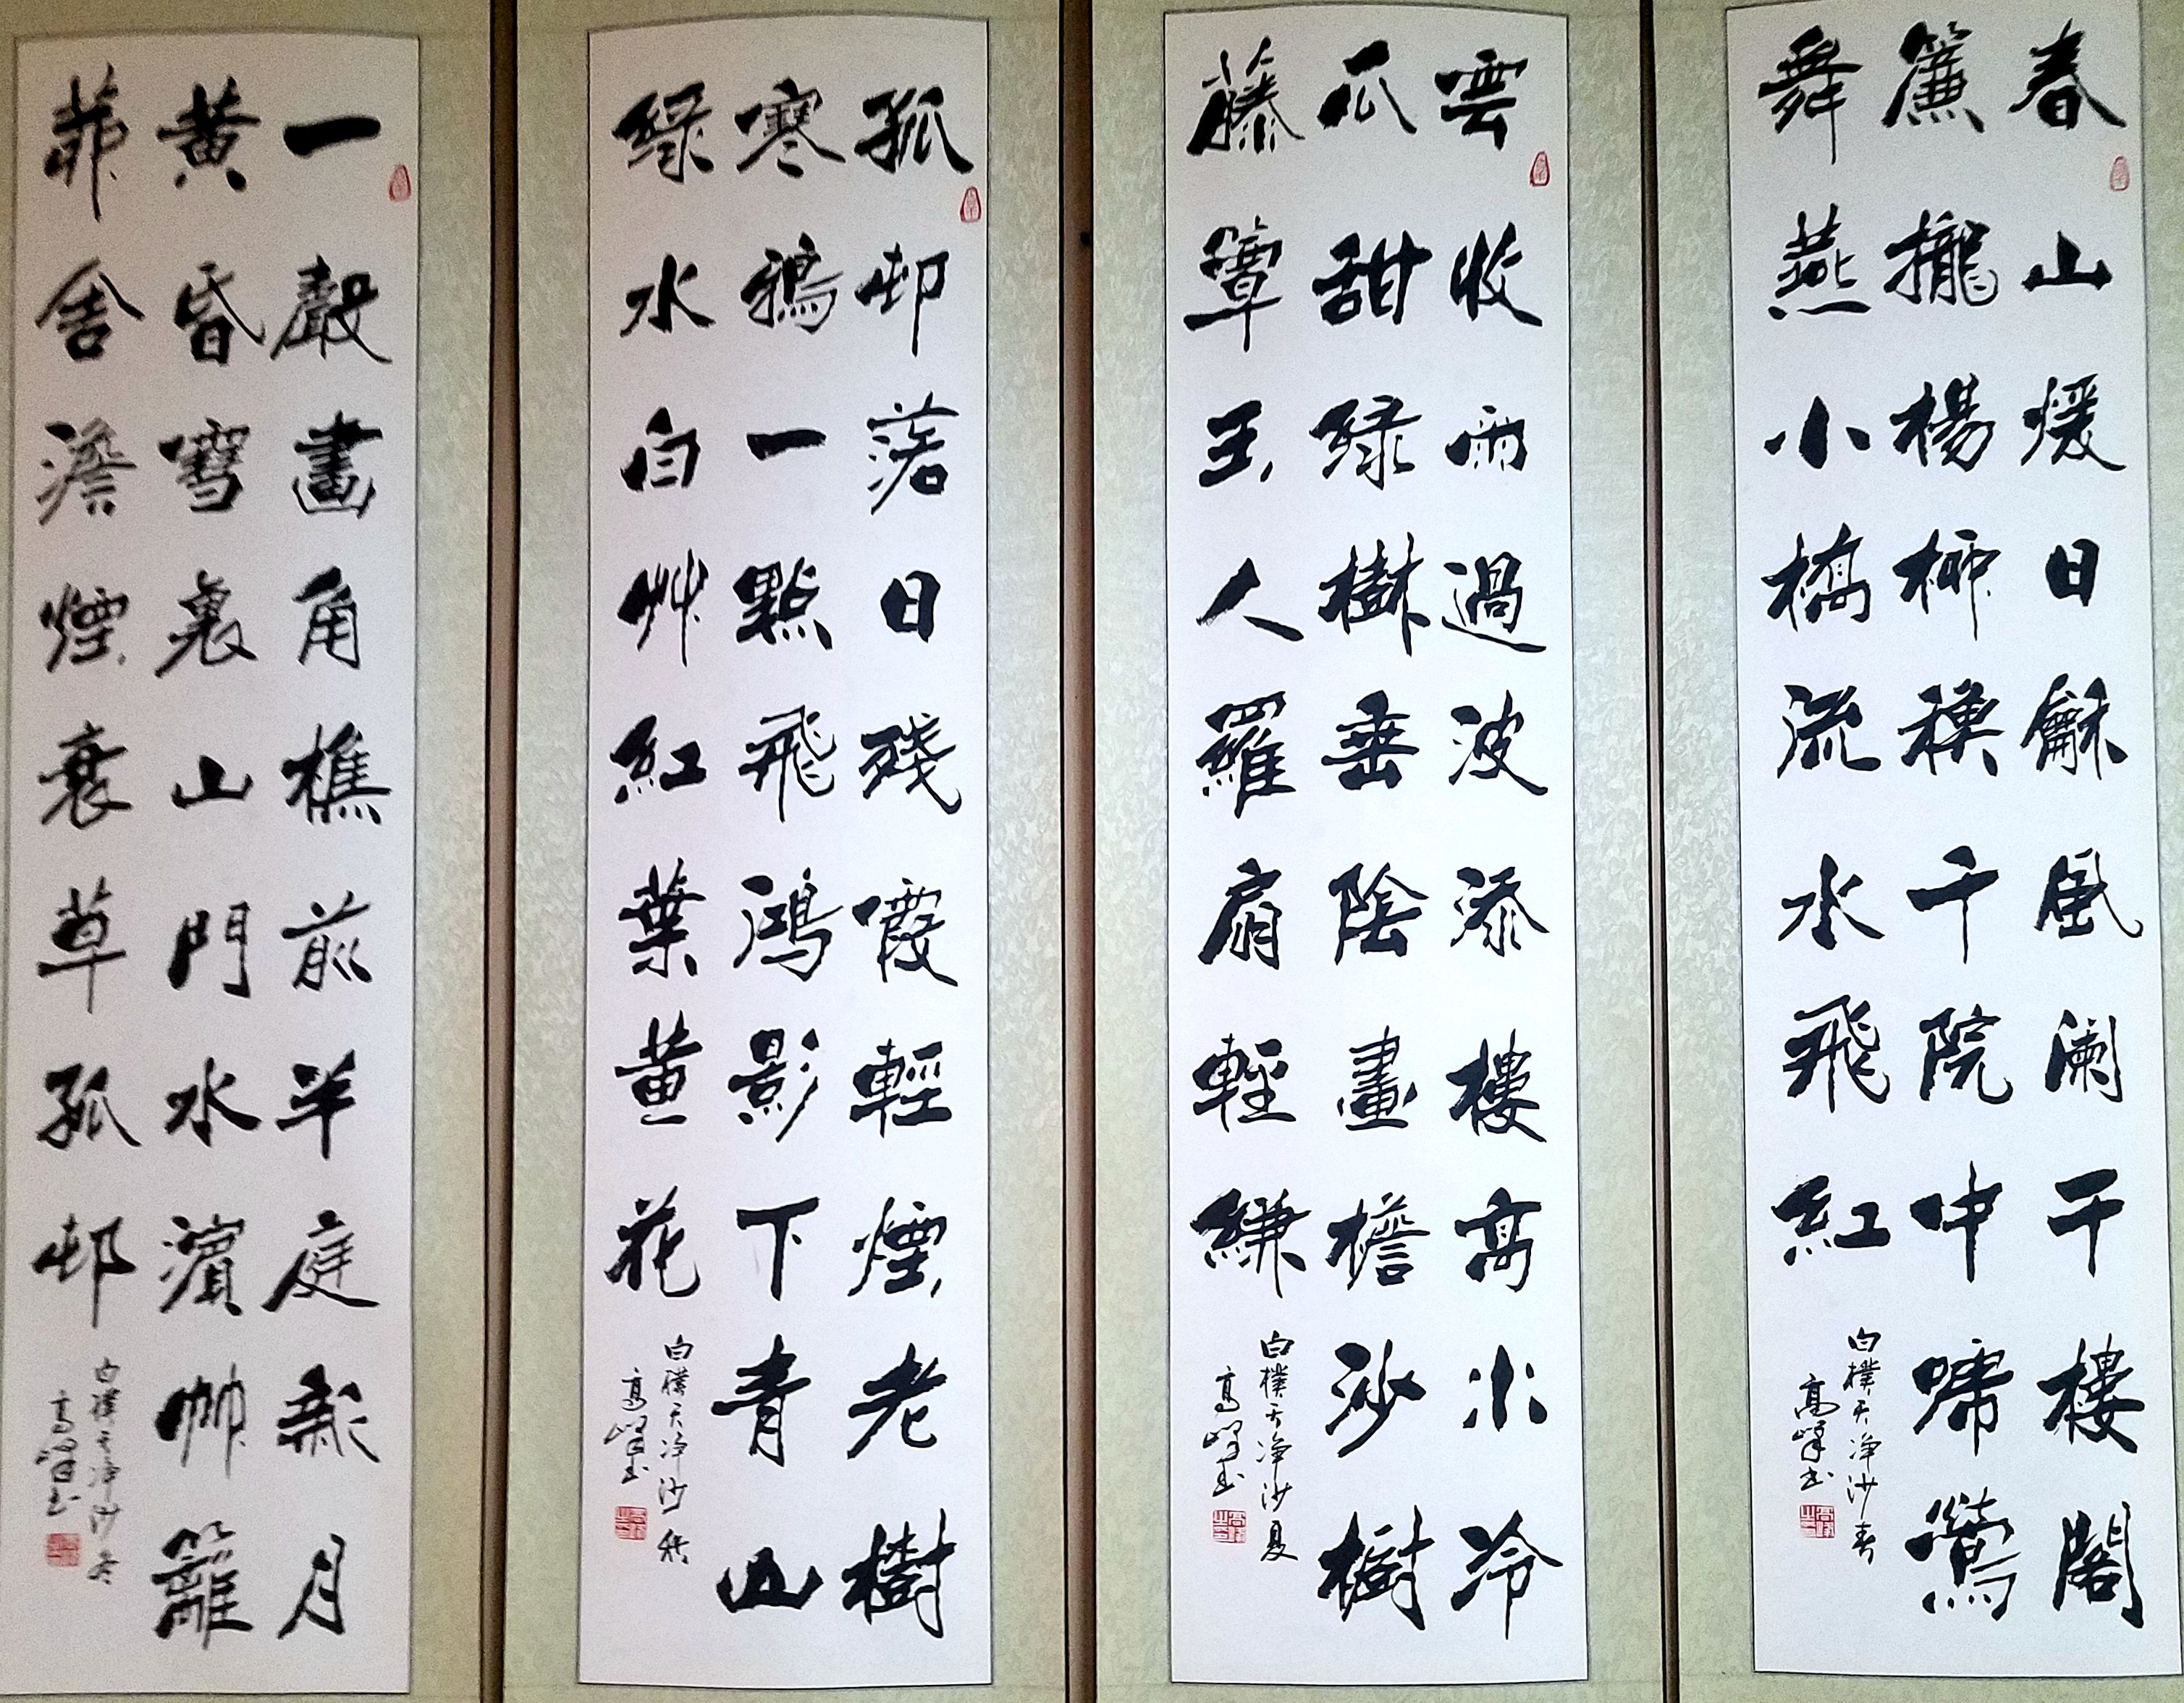 春山煖日龢風闌干樓閣
簾攏楊桺鞦千院中啼鶯
舞燕小橋流水飛紅
白樸天淨沙春
高峰书
雲收雨過波添樓高水冷
瓜甜緑樹垂陰畫檐沙樹
藤簟玉人羅扇輕縑
白樸天净沙夏
高峰书
孤邨落日殘霞輕煙老樹
寒鴉一點飛鴻影下青山
緑水白艸紅葉黄花
白樸天净沙秋
高峰书
一聲畫角樵前半庭新月
黄昏雪裏山門水濱帥籬
茆舍澹煙衰草孤邨
白樸天净沙冬
高峰书